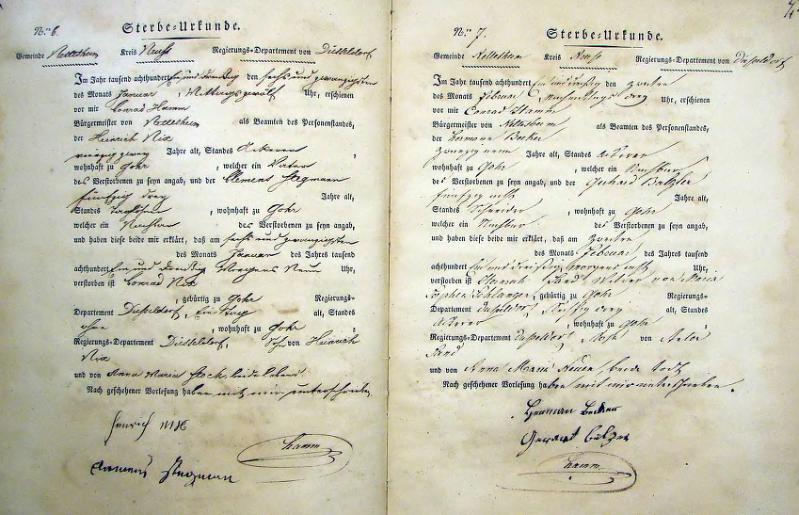 Nro 6.
Sterbe-Urkunde.
Gemeinde Nettesheim Kreis Neuss Regierungs-Departement von Düsseldorf
Im Jahr tausend achthundert ein und dreysig den sechs und zwanzigsten
des Monats Januar, Mittags zwölf Uhr, erschienen
vor mir Conrad Hamm
Bürgermeister von Nettesheim als Beamten des Personenstandes,
der Heinrich Nix
vierzig zwey Jahre alt, Standes Ackerer,
wohnhaft zu Gohr, welcher ein Vater
des Verstorbenen zu seyn angab, und der Clemens Stegmann
fünfzig drey Jahre alt,
Standes, wohnhaft zu Gohr
welcher ein Nachbar des Verstorbenen zu seyn angab,
und haben diese beide mir erklärt, daß am sechs und zwanzigsten
des Monats Januar des Jahres tausend
achthundert ein und dreysig Morgens Neun Uhr,
verstorben ist Conrad Nix
, gebürtig zu Gohr Regierungs-
Departement Düsseldorf, ein Tag alt, Standes
ohne, wohnhaft zu Gohr,
Regierungs-Departement Düsseldorf, Sohn von Heinrich
Nix
und von Anna Maria Fleck, beide lebend.
Nach geschehener Vorlesung haben mit mir unterschrieben
Henrich Nix
Stegman
Hamm
Nro 7.
Sterbe-Urkunde.
Gemeinde Nettesheim Kreis Neuss Regierungs-Departement von Düsseldorf
Im Jahr tausend achthundert ein und dreysig den zweiten
des Monats Februar, Nachmittags drey Uhr, erschienen
vor mir Conrad Hamm
Bürgermeister von Nettesheim als Beamten des Personenstandes,
der Hermann Becker
zwanzig neun Jahre alt, Standes Ackerer,
wohnhaft zu Gohr, welcher ein Nachbar
des Verstorbenen zu seyn angab, und der Gerhard
fünfzig acht Jahre alt,
Standes Schneider, wohnhaft zu Gohr
welcher ein Nachbar des Verstorbenen zu seyn angab,
und haben diese beide mir erklärt, daß am zweiten
des Monats Februar des Jahres tausend
achthundert ein und dreißig morgens acht Uhr,
verstorben ist von Maria
Sophia, gebürtig zu Gohr Regierungs-
Departement Düsseldorf, drey alt, Standes
Ackerer, wohnhaft zu Gohr,
Regierungs-Departement Düsseldorf, Sohn von
und von Anna Maria beide todt
Nach geschehener Vorlesung haben mit mir unterschrieben.
Herman Becker
Gerhart
Hamm